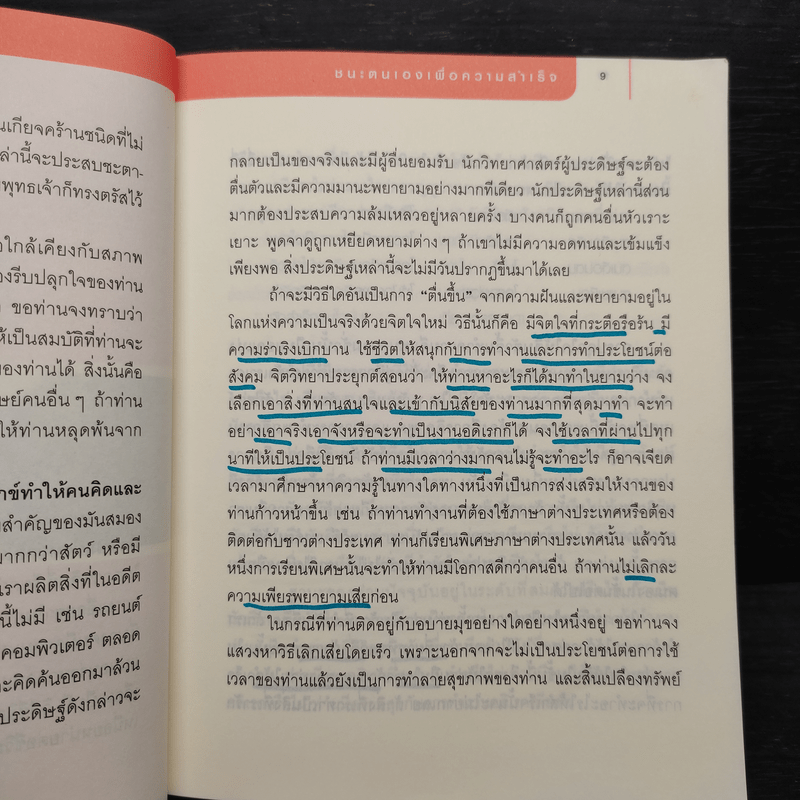 นเกียจคร้านชนิดที่ไม่
ล่านี้จะประสบชะตา-
พุทธเจ้าก็ทรงตรัสไว้
ใกล้เคียงกับสภาพ
องรีบปลุกใจของท่าน
ขอท่านจงทราบว่า
ให้เป็นสมบัติที่ท่านจะ
ของท่านได้ สิ่งนั้นคือ
ษย์คนอื่นๆ ถ้าท่าน
ให้ท่านหลุดพ้นจาก
กซ์ทำให้คนคิดและ
สำคัญของมันสมอง
มากกว่าสัตว์ หรือมี
เราผลิตสิ่งที่ในอดีต
นี้ไม่มี เช่น รถยนต์
คอมพิวเตอร์ ตลอด
ะคิดค้นออกมาล้วน
ประดิษฐ์ดังกล่าวจะ
ชนะตนเองเพื่อความสำเร็จ 9
กลายเป็นของจริงและมีผู้อื่นยอมรับ นักวิทยาศาสตร์ผู้ประดิษฐ์จะต้อง
ตื่นตัวและมีความมานะพยายามอย่างมากทีเดียว นักประดิษฐ์เหล่านี้ส่วน
มากต้องประสบความล้มเหลวอยู่หลายครั้ง บางคนก็ถูกคนอื่นหัวเราะ
เยาะ พูดจาดูถูกเหยียดหยามต่างๆ ถ้าเขาไม่มีความอดทนและเข้มแข็ง
เพียงพอ สิ่งประดิษฐ์เหล่านี้จะไม่มีวันปรากฏขึ้นมาได้เลย
ถ้าจะมีวิธีใดอันเป็นการ “ตื่นขึ้น” จากความฝันและพยายามอยู่ใน
โลกแห่งความเป็นจริงด้วยจิตใจใหม่ วิธีนั้นก็คือ มีจิตใจที่กระตือรือร้น มี
ความร่าเริงเบิกบาน ใช้ชีวิตให้สนุกกับการทำงานและการทำประโยชน์ต่อ
สังคม จิตวิทยาประยุกต์สอนว่า ให้ท่านหาอะไรก็ได้มาทำในยามว่าง จง
เลือกเอาสิ่งที่ท่านสนใจและเข้ากับนิสัยของท่านมากที่สุดมาทำ จะทำ
อย่างเอาจริงเอาจังหรือจะทำเป็นงานอดิเรกก็ได้ จงใช้เวลาที่ผ่านไปทุก
นาทีให้เป็นประโยชน์ ถ้าท่านมีเวลาว่างมากจนไม่รู้จะทำอะไร ก็อาจเจียด
เวลามาศึกษาหาความรู้ในทางใดทางหนึ่งที่เป็นการส่งเสริมให้งานของ
ท่านก้าวหน้าขึ้น เช่น ถ้าท่านทำงานที่ต้องใช้ภาษาต่างประเทศหรือต้อง
ติดต่อกับชาวต่างประเทศ ท่านก็เรียนพิเศษภาษาต่างประเทศนั้น แล้ววัน
หนึ่งการเรียนพิเศษนั้นจะทำให้ท่านมีโอกาสดีกว่าคนอื่น ถ้าท่านไม่เลิกละ
ความเพียรพยายามเสียก่อน
ในกรณีที่ท่านติดอยู่กับอบายมุขอย่างใดอย่างหนึ่งอยู่ ขอท่านจง
แสวงหาวิธีเลิกเสียโดยเร็ว เพราะนอกจากจะไม่เป็นประโยชน์ต่อการใช้
เวลาของท่านแล้วยังเป็นการทำลายสุขภาพของท่าน และสิ้นเปลืองทรัพย์